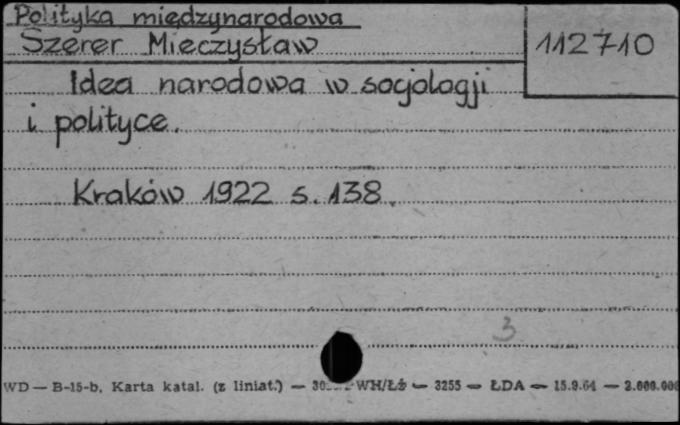 Polityka międzynarodowa
Szerer Mieczysław
112710
Idea narodowa w socjologji
i polityce.
Kraków 1922 s. 138.
3
WD — B-15-b. Karta katal. (z liniat.) — WH/Łż — 3255 — ŁDA — 15.9.61 — 2.000.000